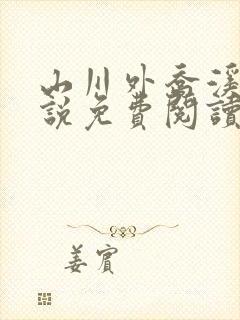 山川外喬溪
說免費閱讀
姜賓